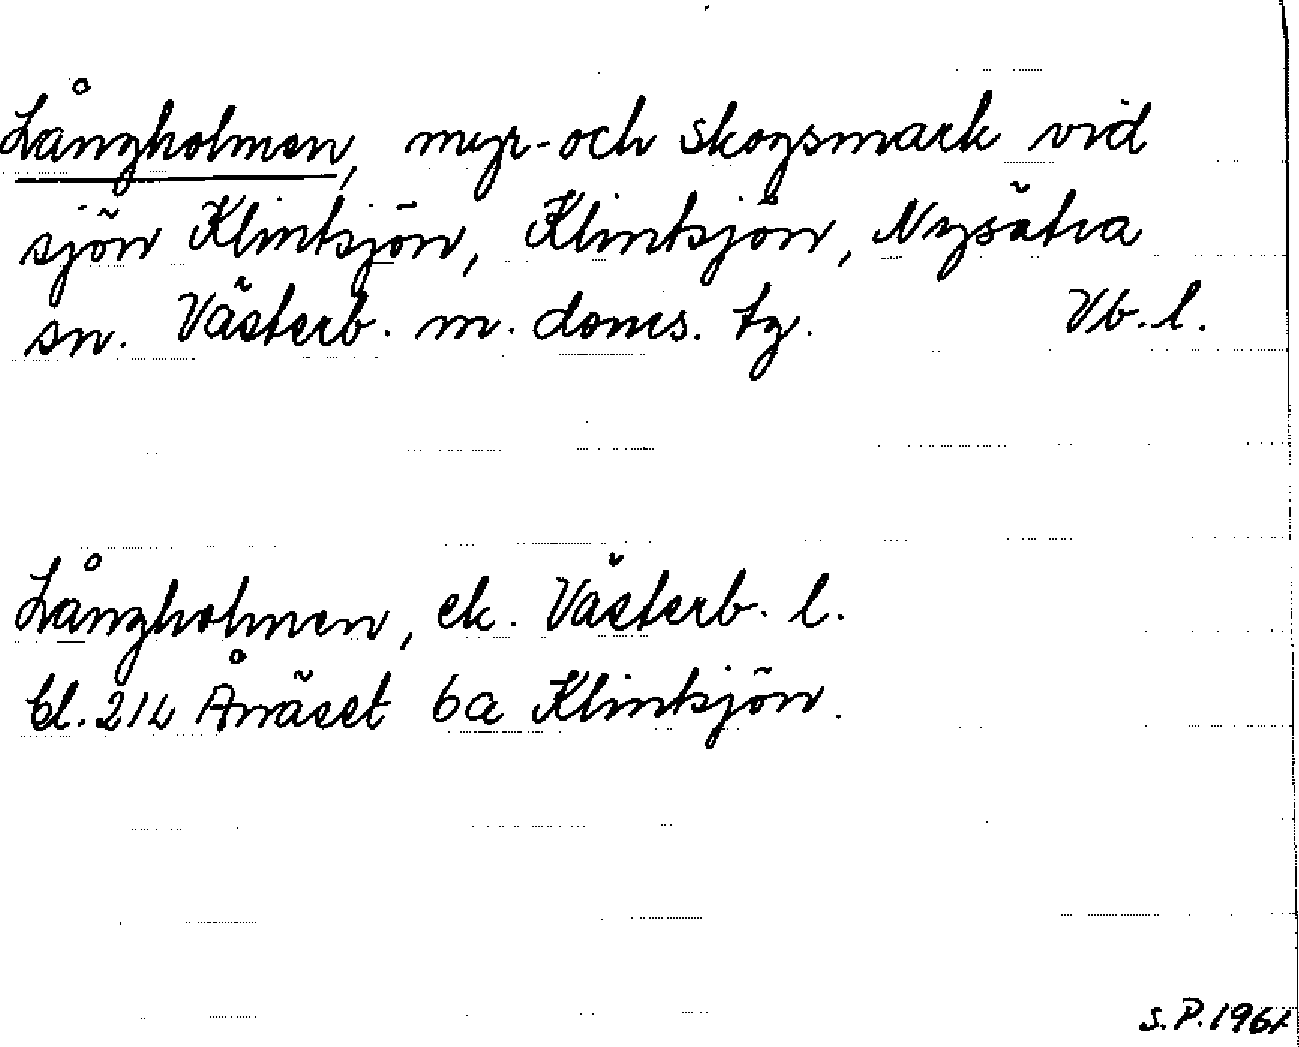 Långholmen, myr- och skogsmark vid
sjön Klintsjön, Klintsjön, Nysätra
sn. Västerb. m. doms. tg. Vb. l.
Långholmen, ek. Västerb. l.
bl. 214 Ånäset 6a Klintsjön.
S. P. 1961.